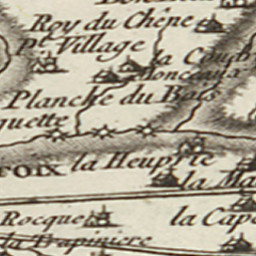 Roy du Chene
Pt. Village
la Coud
Monceaux
Planche du Bois
quette
TOIX la Heuprie
la Ma
Rocque la Cape
la Trapiniere